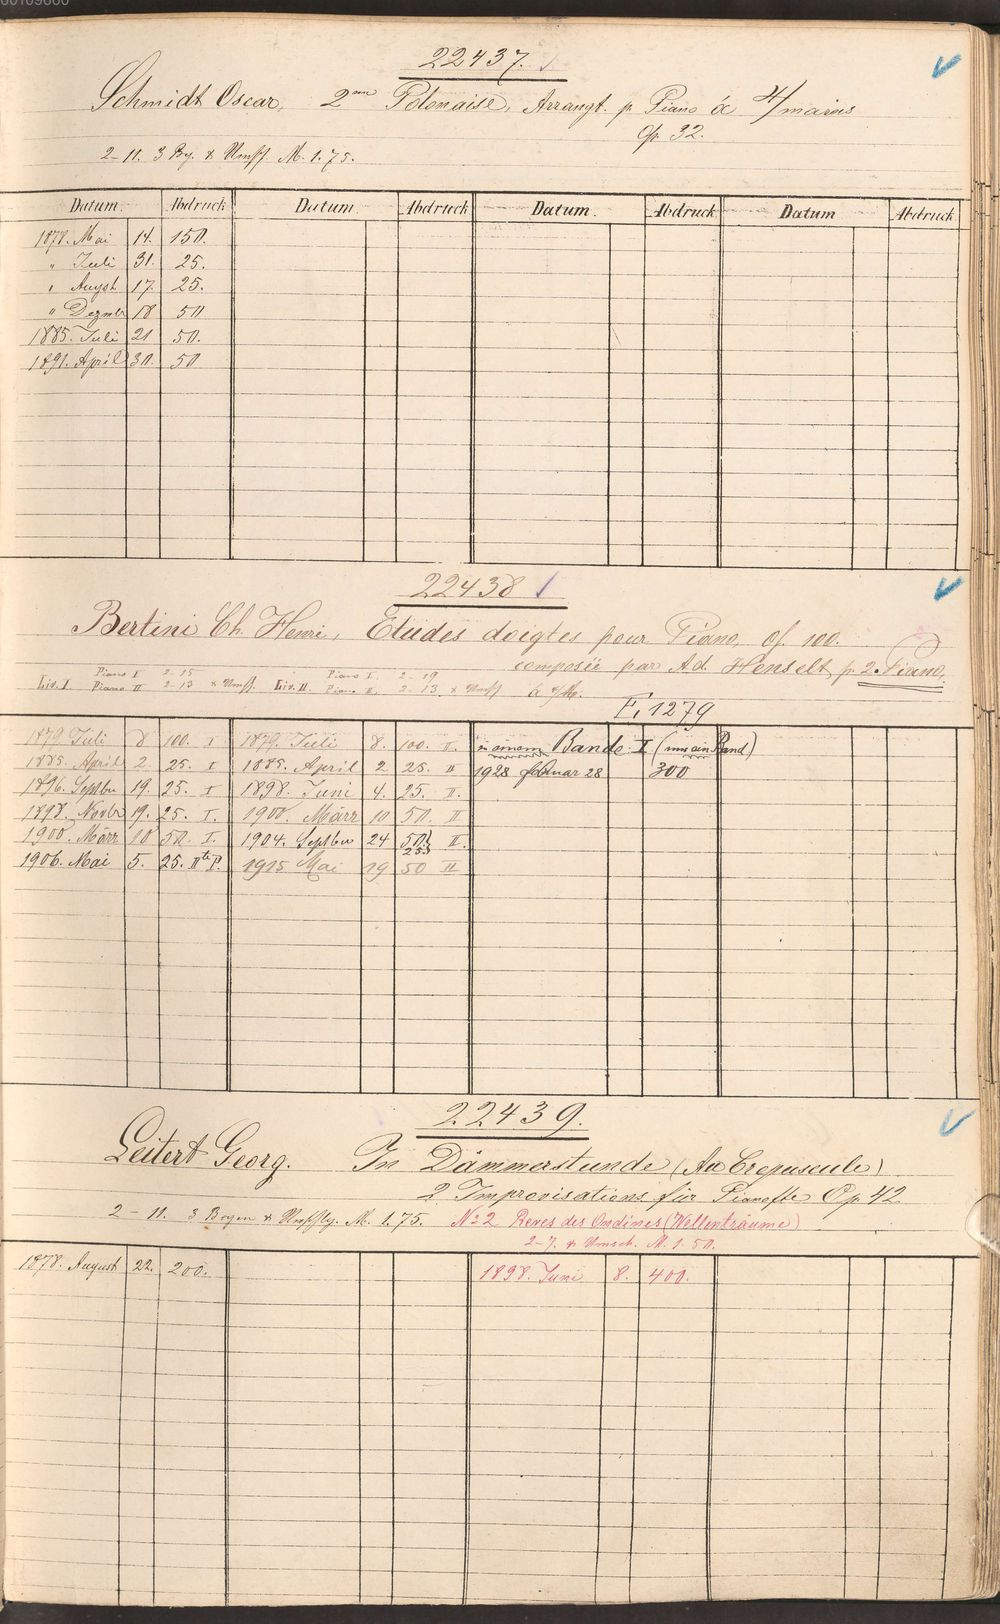 22437.
Schmidt Oscar, 2me Polonaise, Arrangt. p Piano á 4/mains
Op. 32.
2-11. 3 Bg. & Umschl. M. 1.75.
Datum. Abdruck Datum Abdruck Datum. Abdruck Datum Abdruck
1878. Mai 14. 150.
" Juli 31. 25.
" Augst. 17. 25.
" Dezmbr 18 50
1885. Juli 21 50.
1891. April 30. 50
22438
Bertini Ch. Henri, Etudes doigtes pour Piano, Op. 100.
composée par Ad. Henselt, p 2. Piano.
Liv. I Piano I 2-15 Liv. II. Piano I. 2-19
Piano II 2-13 & Umschl. Piano II. 2-13 & Umschl
F. 1279
1879. Juli 8 100. I 1879. Juli 8. 100. II. in einem Bande I (nur ein Band)
1885. April 2. 25. I 1885. April 2 25. II 1928 februar 28 300
1896. Septbr 19. 25. I 1898. Juni 4. 25. II.
1898. Novbr 19. 25. I. 1900. März 10 50. II
1900. März 10 50. I. 1904. Septber 24 50. 25 II.
1906. Mai 5. 25. IIte P. 1915 Mai 19 50 II
22439.
Leitert Georg. In Dämmerstunde (Au Crepuscule)
2 Improvisations für Pianofte Op 42
2-11. 3 Bogen & Umschlg. M. 1.75. No 2 Reves des Ondines (Wellenträume)
2-7. & Umsch. M. 1.50.
1878. August 22. 200. 1898. Juni 8. 400.